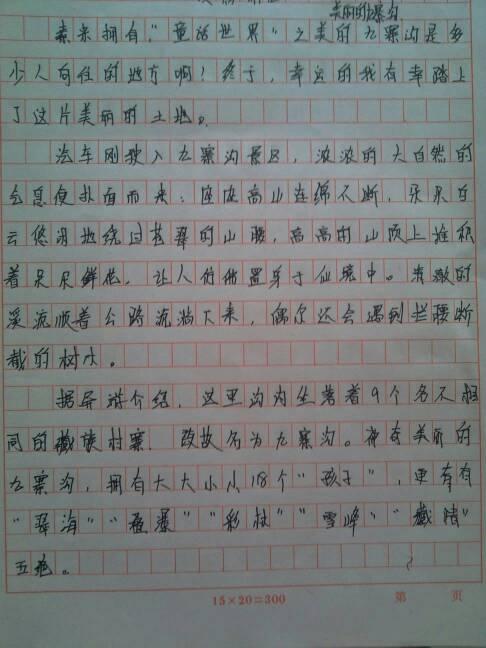 美丽的九寨沟
素来拥有“童话世界”之美的九寨沟是多
少人向往的地方啊！终于，幸运的我有幸踏上
了这片美丽的土地。
汽车刚驶入九寨沟景区，浓浓的大自然的
气息便扑面而来：座座高山连绵不断，朵朵白
云悠闲地绕过苍翠的山腰，高高的山顶上堆积
着朵朵鲜花，让人仿佛置身于仙境中。清澈的
溪流顺着公路流淌下来，偶尔还会遇到拦腰断
截的树木。
据导游介绍，这里沟内坐落着9个各不相
同的藏族村寨，故名为九寨沟。神奇美丽的
九寨沟，拥有大大小小18个“孩子”，更有有
“翠海”“叠瀑”“彩林”“雪峰”“藏情”
五绝。
15×20=300
第 页